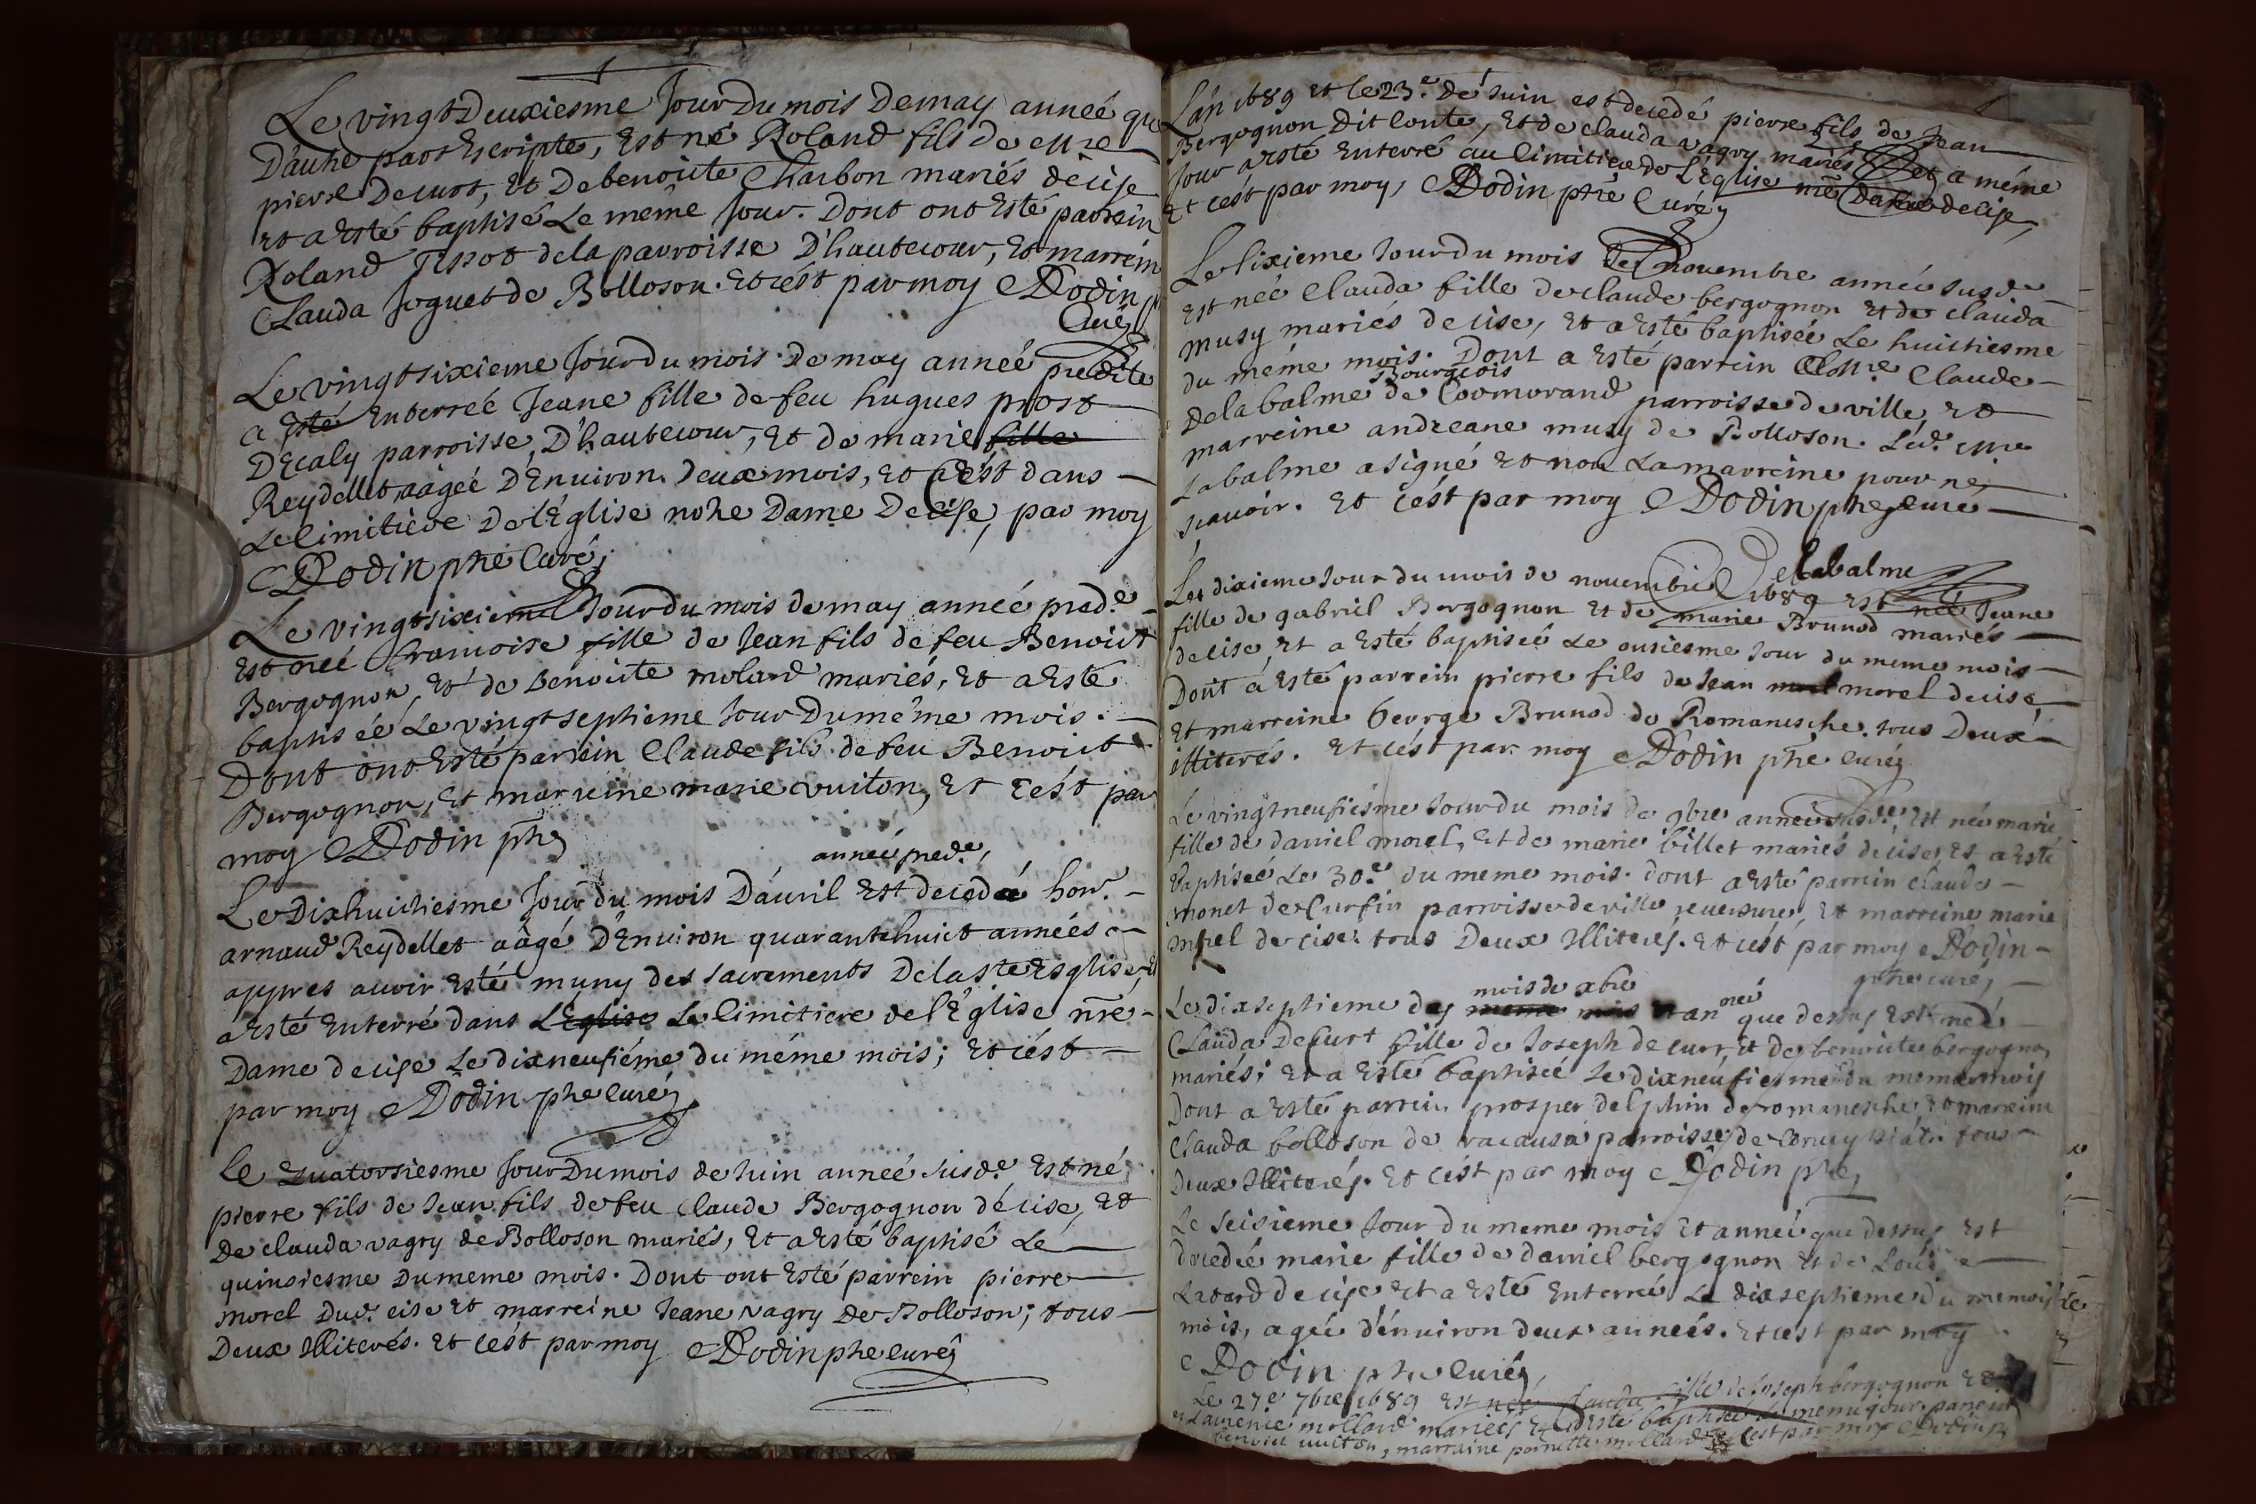 Le vingt Deuxiesme Jour Du mois De may anneé que
D'autre part Escripte, Est né Roland fils de Mre
pierre Decurt, Et De benoiste Charbon mariés de cise
Et a Esté baptisé Le meme Jour. Dont ont Esté parrein
Roland Tissot de la parroisse D'hautecour, Et marreine
Clauda Joguet de Bolloson. Et c'est par moy Dodin p
Curé
Le vingt sixieme Jour du mois De may année predite
a Esté Enterreé Jeane fille de feu hugues prost
D'Ecaly parroisse, D'hautecour, Et de marie fille
Reydellet, aâgeé D'Enuiron Deux mois, Et c'est dans
Le Cimitiere De l'Eglise notre Dame De cise, par moy
Dodin ptre Curé,
Le vingt sixieme Jour du mois de may anneé pred.e
Est neé francoise fille de Jean fils de feu Benoict
Bergognon, Et de Benoiste molard mariés, Et a Esté
baptiseé Le vingt septieme Jour Du méme mois.
Dont ont Esté parrein Claude fils de feu Benoict
Bergognon, Et marreine marie vuiton, Et c'est par
moy Dodin ptre
anneé pred.e,
Le Dixhuictiesme Jour du mois D'auril Est decedé hon.
arnaud Reydellet aâgé D'Enuiron quarantehuict anneés
appres auoir Esté muny des sacrements De la ste Esglise, Et
a Esté Enterré dans L'Eglise Le Cimitiere de l'Eglise nre
Dame de cise Le dixneufiéme du méme mois; Et c'est
par moy Dodin ptre curé
Le Quatorsiesme Jour Du mois de Juin anneé susd.e Est né
pierre fils de Jean fils de feu Claude Bergognon de cise, Et
de clauda vagry de Bolloson mariés, Et a Esté baptisé Le
quinsiesme Du meme mois. Dont ont Esté parrein pierre
morel Dud. cise Et marreine Jeane vagry de Bolloson; tous
Deux Illiterés. Et c'est par moy Dodin ptre curé
L'an 1689 Et le 23.e de Juin est decedé pierre fils de Jean
Bergognon Dit Conte, Et de clauda vagry mariés Et a méme
Jour a Esté Enterré au Cimitiere de L'Eglise nre Dame de cise,
Et c'est par moy, Dodin ptre Curé
Le sixieme Jour du mois de nouembre anneé susd.e
Est neé Clauda fille de claude bergognon Et de clauda
musy mariés de cise, Et a Esté baptiseé Le huictiesme
du méme mois. Dont a Esté parrein Mre Claude
bourgeois
De la balme de Cormorand parroisse de ville, Et
marreine andreane musy de Bolloson. Led. Mre
Labalme a signé Et non La marreine pour ne
scauoir. Et c'est par moy Dodin ptre curé
Delabalme
Le dixieme Jour du mois de nouembre 1689 Est neé Jeane
fille de gabriel Bergognon Et de marie Brunod mariés
de cise, Et a Esté baptiseé Le onsiesme Jour du meme mois
Dont a Esté parrein pierre fils de Jean morel de cise,
Et marreine george Brunod de Romanesche. tous Deux
illiterés. Et c'est par moy Dodin ptre curé
Le vingtneufiésme Jour du mois de 9bre anneé susd.e, Est neé marie
fille de daniel morel, Et de marie billet mariés de cise, Et a Esté
baptiseé Le 30.e du meme mois. dont a Esté parrein claude
monet de Curfin parroisse de ville reuersure, Et marreine marie
morel de cise. tous Deux Illiteres. Et c'est par moy Dodin
ptre curé,
mois de xbre
Le dixseptieme du meme mois Et anneé que dessus Est neé
Clauda Decurt fille de Joseph decurt Et de benoiste bergognon
mariés; Et a Esté baptiseé Le dixneufiesme du meme mois
Dont a Esté parrein prosper delphin de romanesche, Et marreine
Clauda bolloson de racausa parroisse de tous
Deux Illiterés. Et c'est par moy Dodin ptre
Le seisieme Jour du meme mois Et anneé que dessus Est
decedeé marie fille de daniel bergognon Et de
Latard de cise Et a Esté Enterreé Le dixseptieme du
mois, ageé d'énuiron deux anneés. Et c'est par moy
Dodin ptre Curé
Le 27.e 7bre 1689 Est neé Clauda fille de Joseph bergognon Et
Laurence mollard mariés Et a Esté baptiseé Le meme jour. parrein
benoict vuiton, marraine pernette mollard Et c'est par moy Dodin p